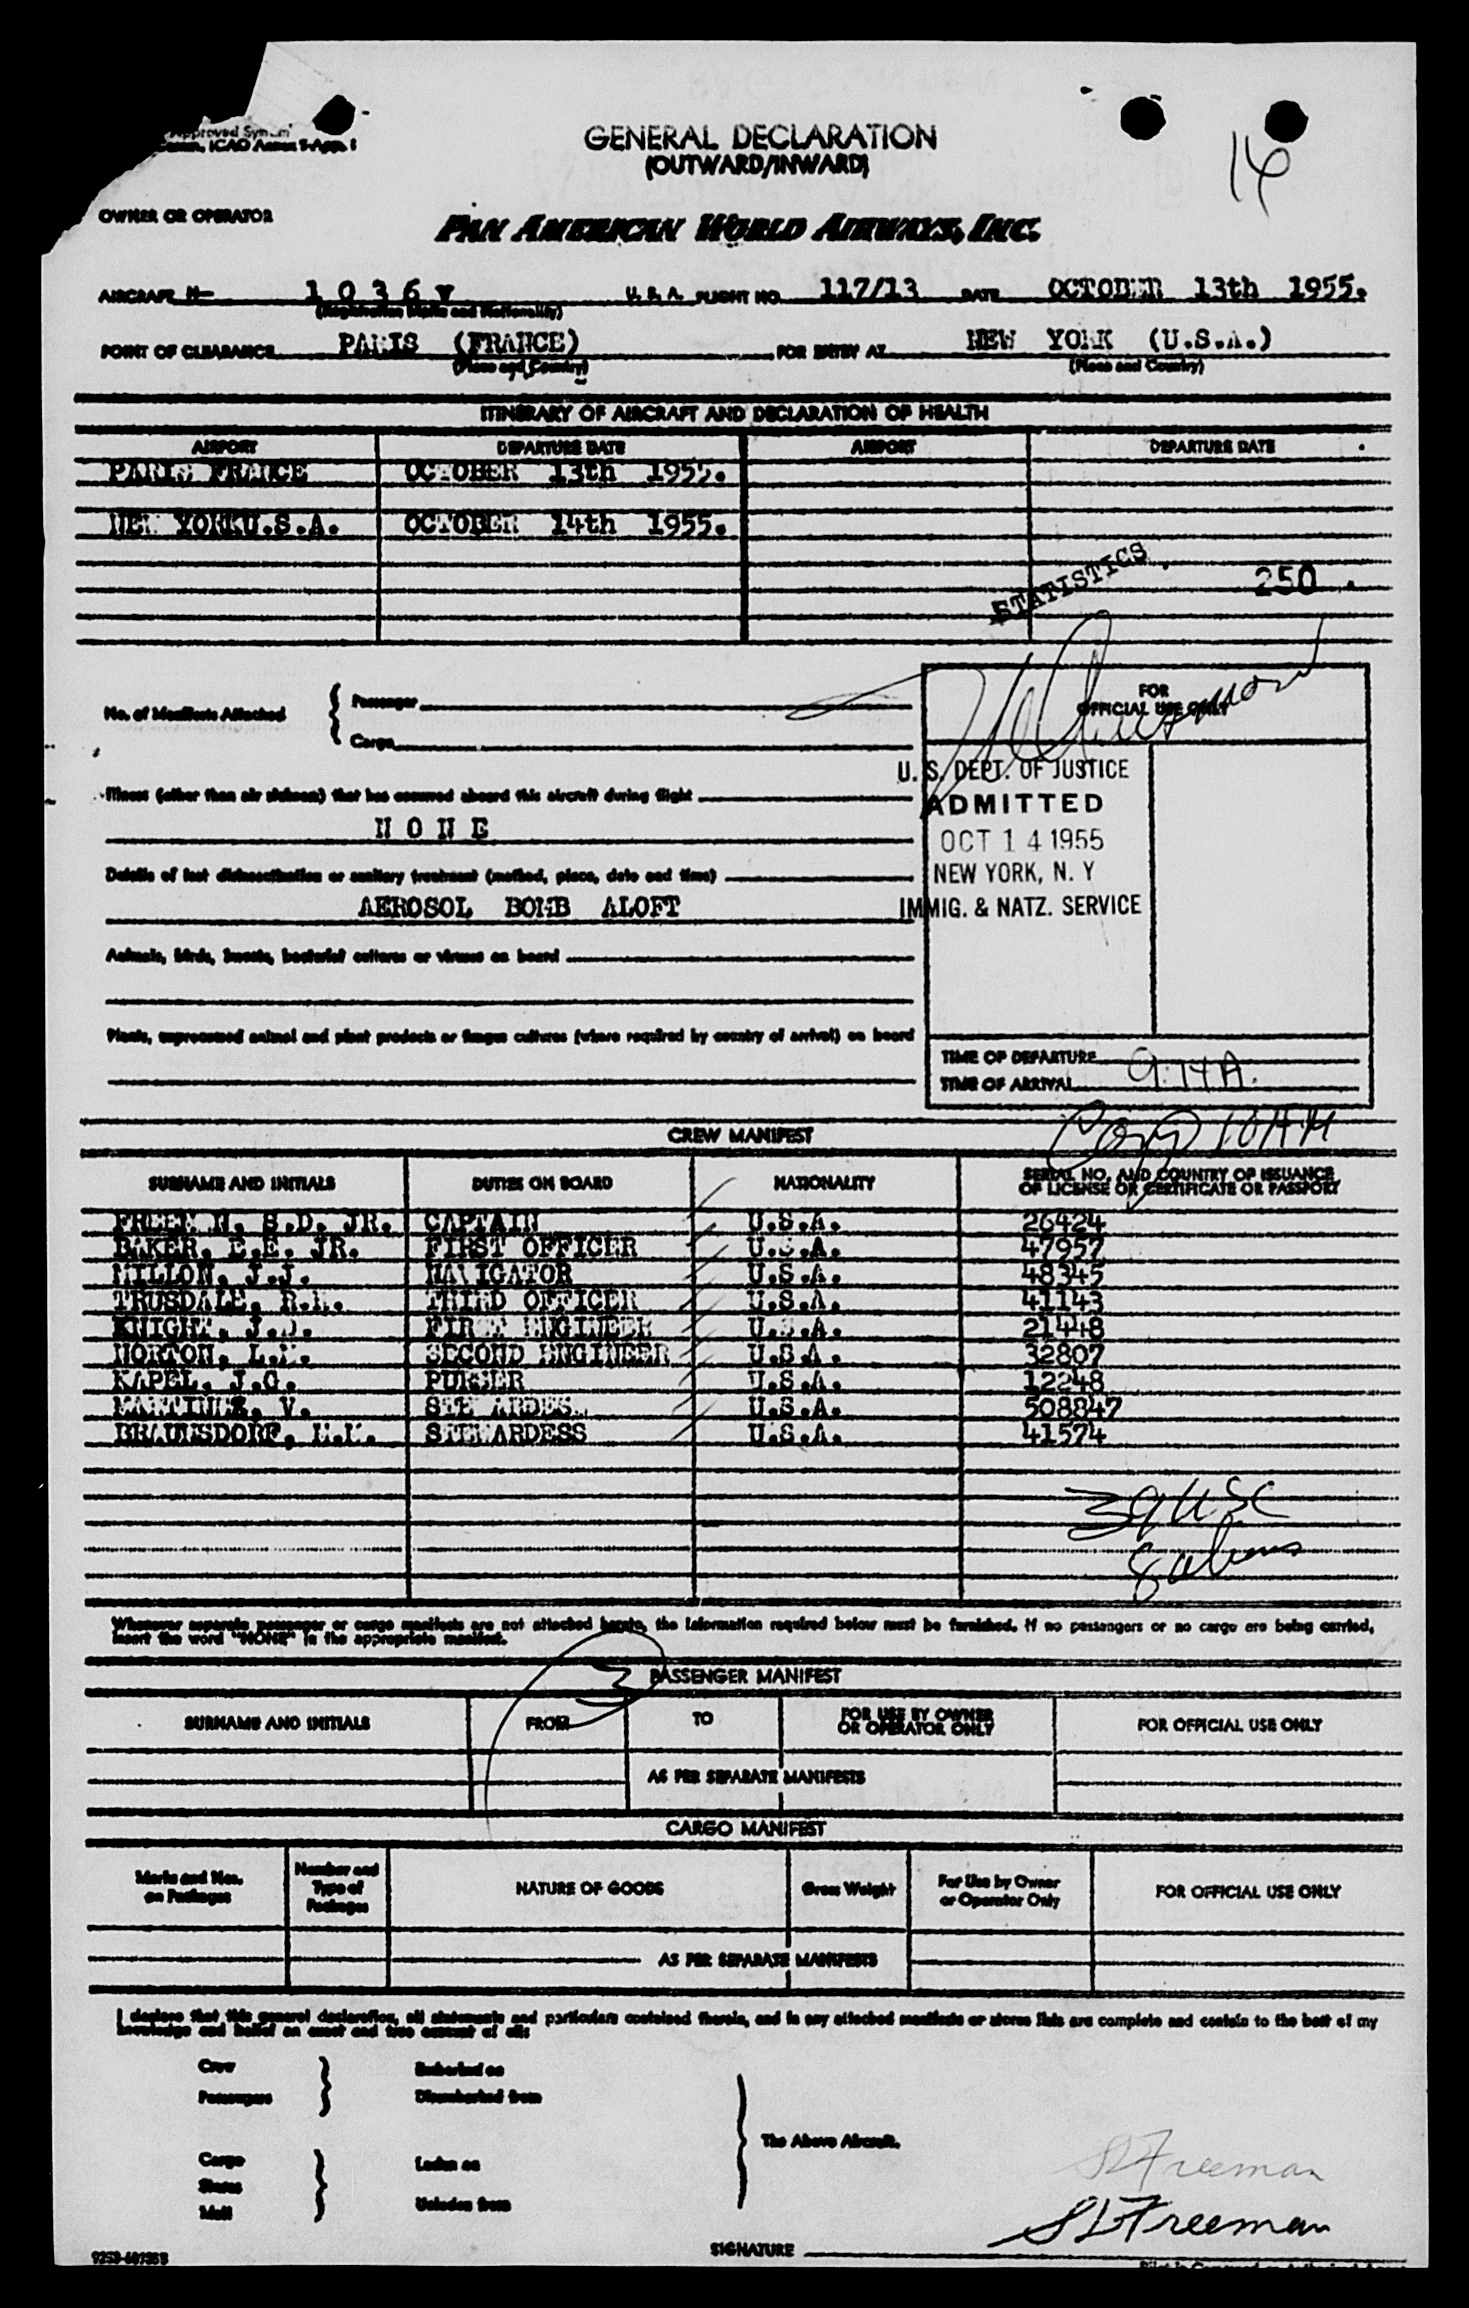 Approved
ICAO Annex 9-App. 1
GENERAL DECLARATION
(OUTWARD/INWARD)
14
OWNER OR OPERATOR
PAN AMERICAN WORLD AIRWAYS, INC.
AIRCRAFT N- 1036V U.S.A. FLIGHT NO. 117/13 DATE OCTOBER 13th 1955.
(Registration Marks and Nationality)
POINT OF CLEARANCE PARIS (FRANCE) FOR ENTRY AT NEW YORK (U.S.A.)
(Place and Country) (Place and Country)
ITINERARY OF AIRCRAFT AND DECLARATION OF HEALTH
AIRPORT DEPARTURE DATE AIRPORT DEPARTURE DATE
PARIS FRANCE OCTOBER 13th 1955.
NEW YORK U.S.A. OCTOBER 14th 1955.
STATISTICS 250
No. of Manifests Attached { Passenger
Cargo
FOR
OFFICIAL USE ONLY
U. S. DEPT. OF JUSTICE
ADMITTED
OCT 14 1955
NEW YORK, N. Y
IMMIG. & NATZ. SERVICE
Illness (other than air sickness) that has occurred aboard this aircraft during flight
NONE
Details of last disinsectization or sanitary treatment (method, place, date and time)
AEROSOL BOMB ALOFT
Animals, birds, insects, bacterial cultures or viruses on board
Plants, unprocessed animal and plant products or fungus cultures (where required by country of arrival) on board
TIME OF DEPARTURE
TIME OF ARRIVAL 9:14A.
CREW MANIFEST
10AM
SURNAME AND INITIALS DUTIES ON BOARD NATIONALITY SERIAL NO. AND COUNTRY OF ISSUANCE
OF LICENSE OR CERTIFICATE OR PASSPORT
FREEMAN, S.D. JR. CAPTAIN U.S.A. 26424
BAKER, E.E. JR. FIRST OFFICER U.S.A. 47957
MILLON, J.J. NAVIGATOR U.S.A. 48345
TRUSDALE, R.M. THIRD OFFICER U.S.A. 41143
KNIGHT, J.D. FIRST ENGINEER U.S.A. 21448
NORTON, L.M. SECOND ENGINEER U.S.A. 32807
KAPEL, J.G. PURSER U.S.A. 12248
MARTINEZ, V. STEWARDESS U.S.A. 508847
BRAUNSDORF, M.M. STEWARDESS U.S.A. 41574
39 USC
8 aliens
Whenever separate passenger or cargo manifests are not attached hereto, the information required below must be furnished. If no passengers or no cargo are being carried,
insert the word "NONE" in the appropriate manifest.
3
PASSENGER MANIFEST
SURNAME AND INITIALS FROM TO FOR USE BY OWNER
OR OPERATOR ONLY FOR OFFICIAL USE ONLY
AS PER SEPARATE MANIFESTS
CARGO MANIFEST
Marks and Nos.
on Packages Number and
Type of
Packages NATURE OF GOODS Gross Weight For Use by Owner
or Operator Only FOR OFFICIAL USE ONLY
AS PER SEPARATE MANIFESTS
I declare that this general declaration, all statements and particulars contained therein, and in any attached manifests or stores lists are complete and contain to the best of my
knowledge and belief an exact and true account of all:
Crew } Embarked on
Passengers Disembarked from
The Above Aircraft.
Cargo } Laden on
Stores
Mail Unladen from
SD Freeman
SD Freeman
SIGNATURE